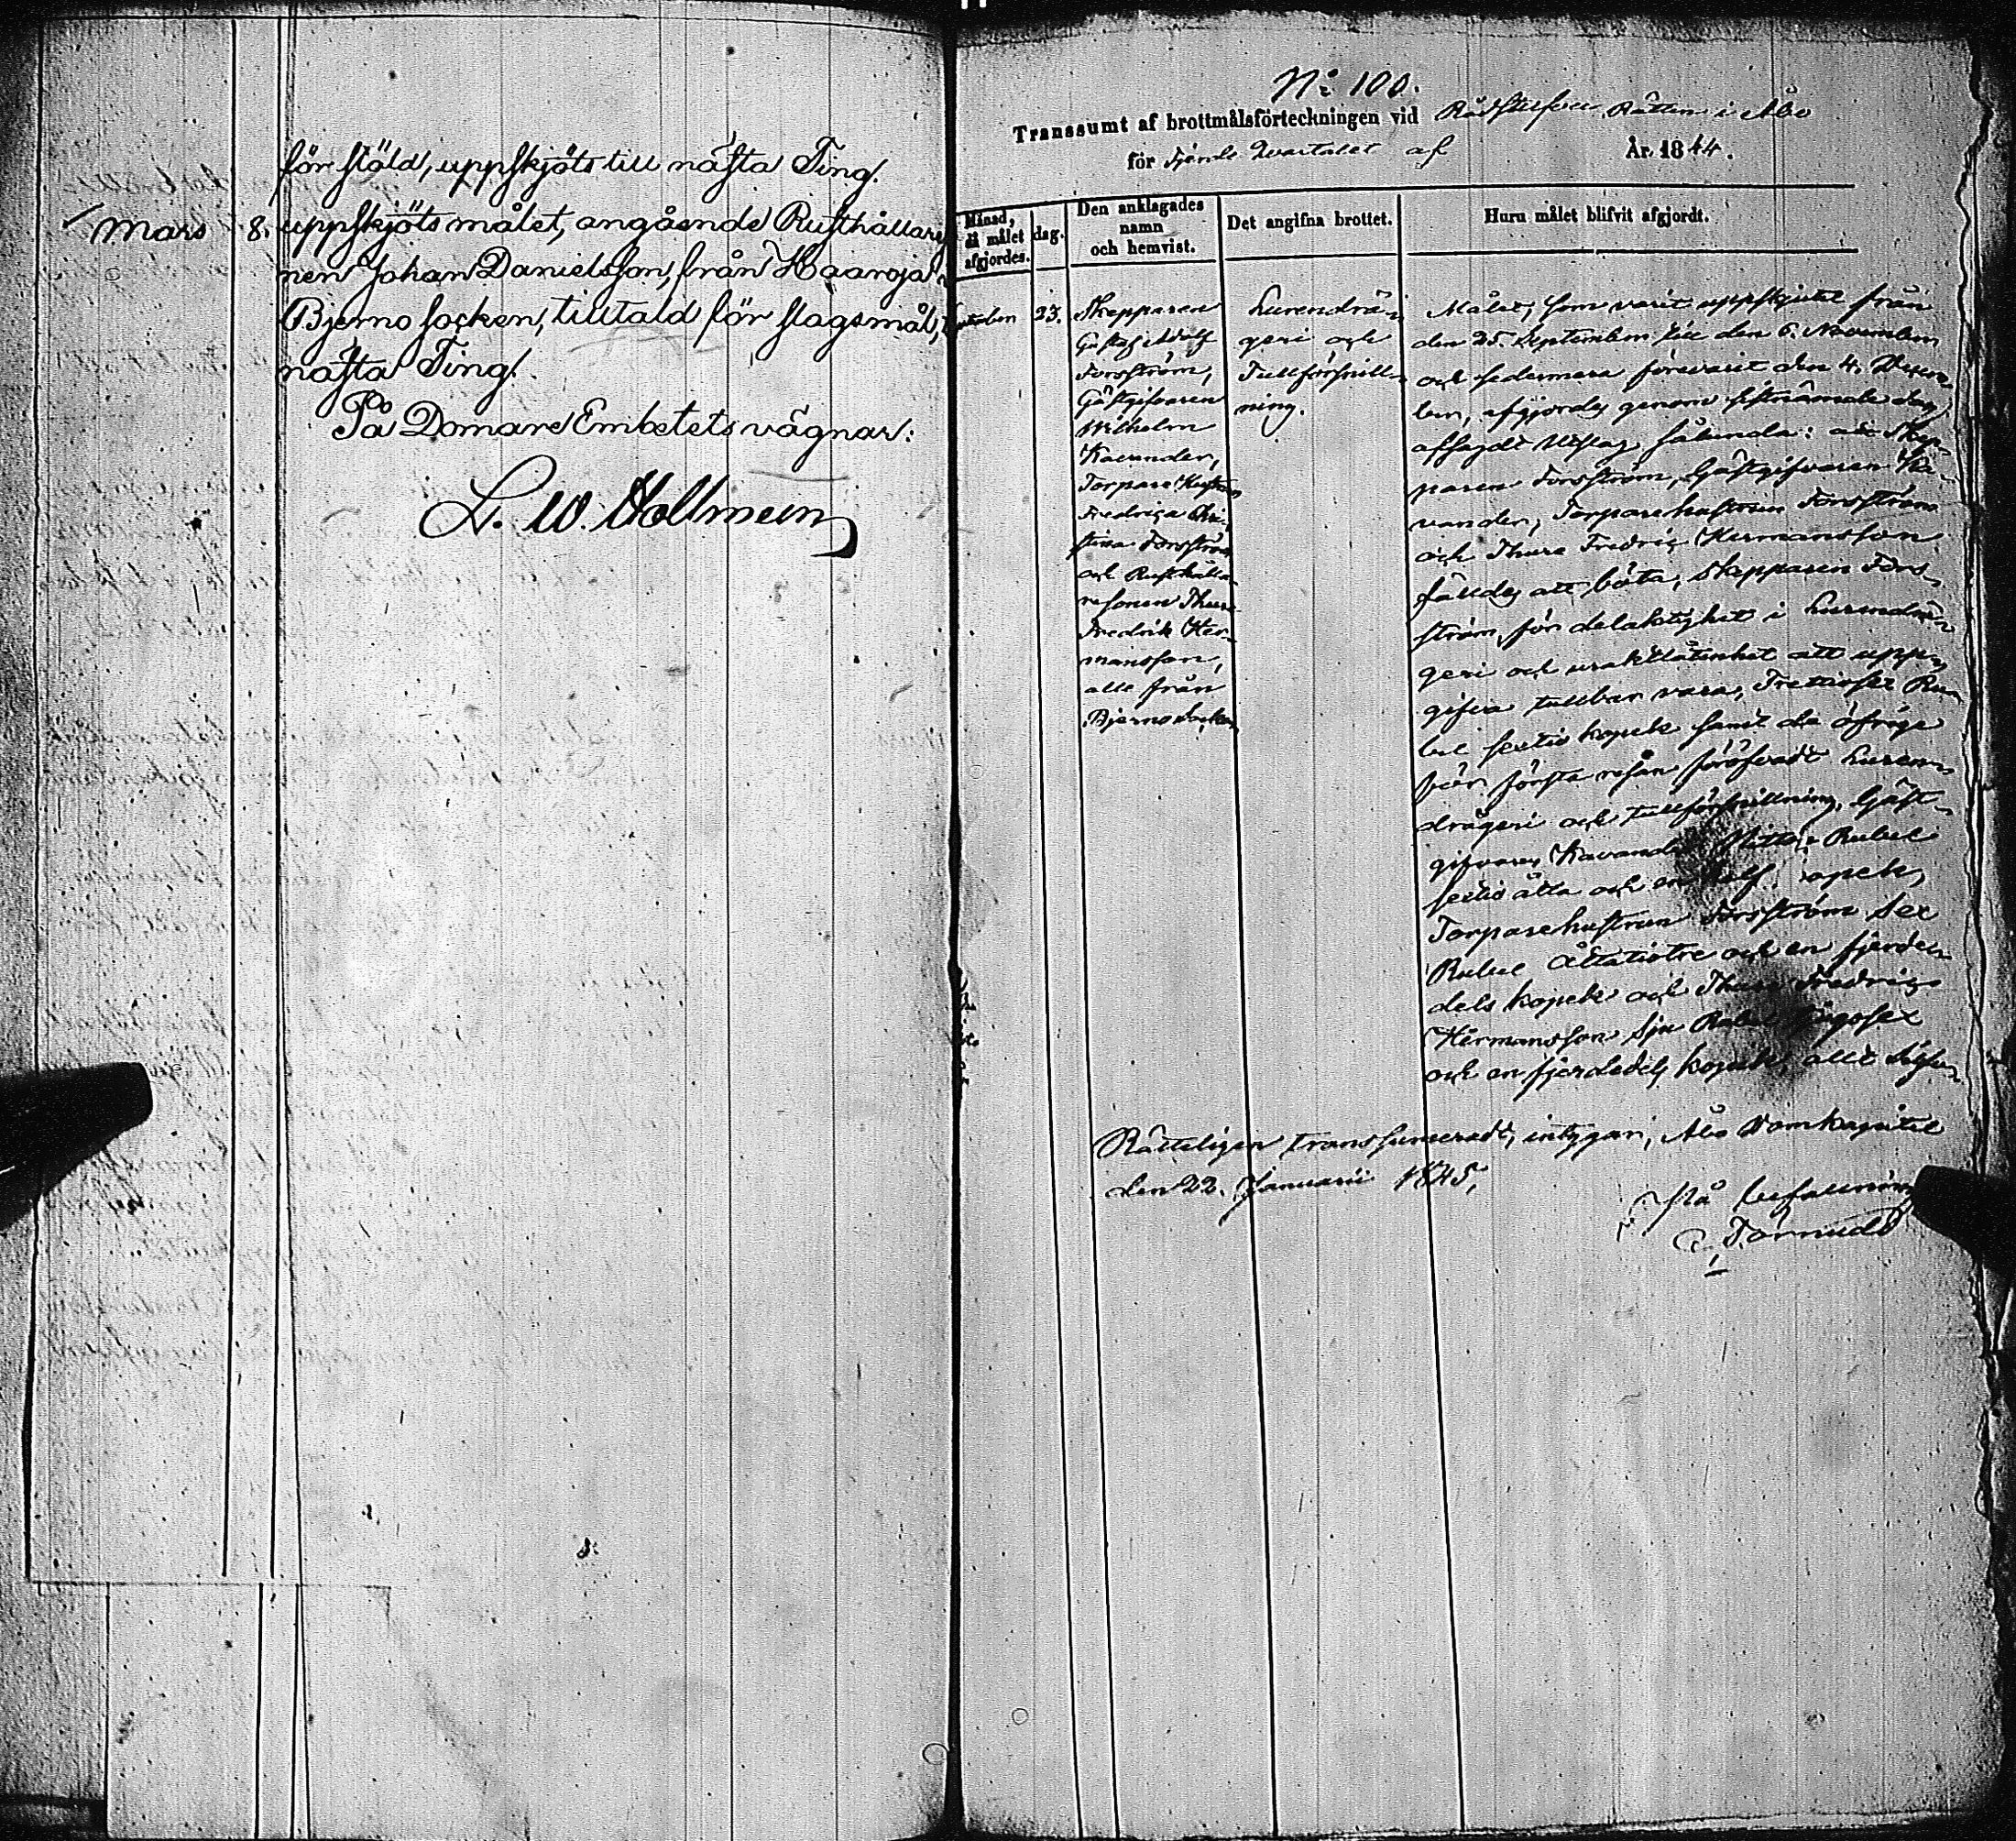 för stöld, uppskjöts till nästa Ting.
Mars 8. uppskjöts målet, angående Rusthållareso-
nen Johan Danielsson, från Haaroja
Bjerno socken, tilltald för slagsmål, t
nästa Ting.
På Domare Embetets vägnar:
L. W. Hollmeen
N:o 100.
Transsumt af brottmålsförteckningen vid Rådstufvu Rätten i Åbo
för Fjerde Qvartalet af År 1844.
Månad,
då målet
afgjordes.
dag.
Den anklagades
namn
och hemvist.
Det angifna brottet.
Huru målet blifvit afgjordt.
23.
Skepparen
Gustaf Adolf
Forsström,
Gästgifvaren
Wilhelm
Kavander,
Torpare Hustrun
Fredrica Chri-
stina Forsström
och Rusthålla-
resonen Thure
Fredrik Her-
mansson,
alle från
Bjerno Socken
Lurendrä-
geri och
Tullförsnill-
ning.
Målet, som varit uppskjutit från
den 25. September till den 6. November
och sedermera förevarit den 4. Decem-
ber, afgjordes genom sistnämde dag
afsagdt Utslag sålunda: att Skep-
paren Forsström, Gästgifvaren Ka-
vander, Torparehustrun Forsström
och Thure Fredric Hermansson
fälldes att böta, Skepparen Fors-
ström, för delaktighet i Lurendrä-
geri och uraktlåtenhet att upp-
gifva tullbar vara, Trettiosex Ru-
bel sextio kopek samt de öfrige
för första resan föröfvadt Luren-
drägeri och tullförsnillning, Gäst-
gifvaren Kavander Nitton Rubel
sextio åtta och en half kopek,
Torparehustrun Forsström Sex
Rubel Åttatiotre och en fjerde-
dels kopek och Thure Fredric
Hermansson Sju Rubel tjugosex
och en fjerdedels kopek, allt Silfver
Rätteligen transsumeradt, intygar, Åbo Domkapitel
den 22. Januarii 1845,
På befallning
Törnudd